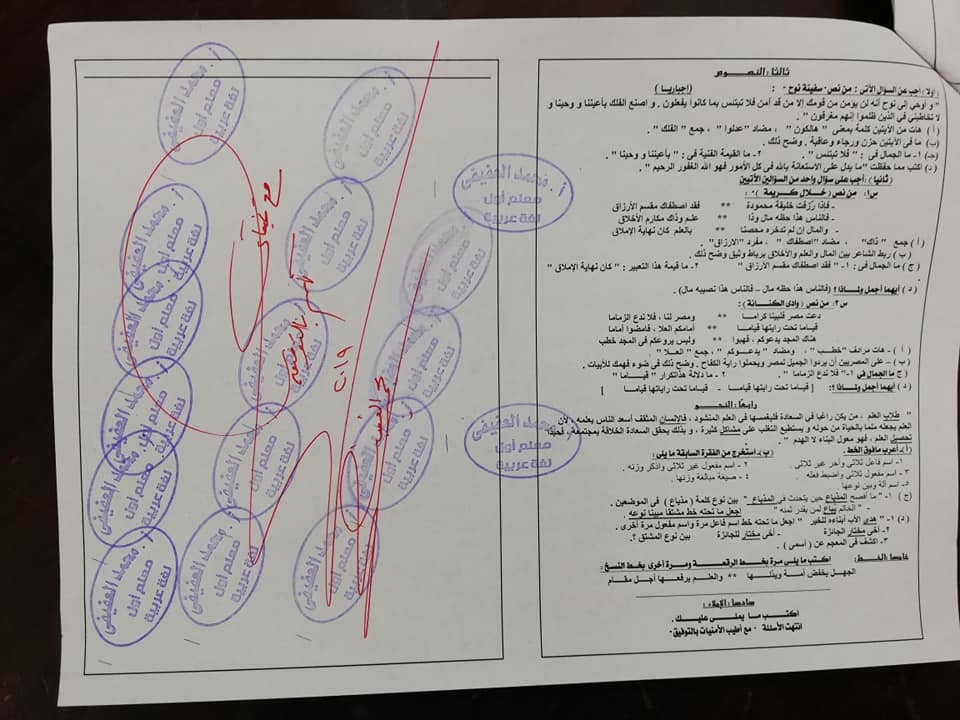 ثالثا : النصوص
أولا : أجب عن السؤال الآتي : من نص " سفينة نوح " : ( إجباريا )
" و أوحي إلى نوح أنه لن يؤمن من قومك إلا من قد آمن فلا تبتئس بما كانوا يفعلون . و اصنع الفلك بأعيننا و وحينا و
لا تخاطبني في الذين ظلموا إنهم مغرقون " .
( أ ) هات من الآيتين كلمة بمعنى " هالكون " ، مضاد " عدلوا " ، جمع " الفلك " .
(ب) ما في الآيتين حزن ورجاء وعاقبة . وضح ذلك .
(جـ) ١- ما الجمال في : " فلا تبتئس " . ٢- ما القيمة الفنية في : " بأعيننا و وحينا " .
( د ) اكتب مما حفظت "ما يدل على الاستعانة بالله في كل الأمور فهو الله الغفور الرحيم " .
( ثانيا ) : أجب على سؤال واحد من السؤالين الآتيين
س١: من نص (خلال كريمة ) :
- فإذا رُزقت خليقة محمودة ** فقد اصطفاك مقسم الأرزاق
- فالناس هذا حظه مال وذا ** علم وذاك مكارم الأخلاق
- والمال إن لم تدخره محصنا ** بالعلم كان نهاية الإملاق
( أ ) جمع " ذاك" ، مضاد "اصطفاك " ، مفرد "الارزاق" .
( ب ) ربط الشاعر بين المال والعلم والأخلاق برباط وثيق وضح ذلك .
( ج ) ما الجمال في : ١- " فقد اصطفاك مقسم الأرزاق " ٢- ما قيمة هذا التعبير : " كان نهاية الإملاق "
( د ) أيهما أجمل ولماذا ؟ (فالناس هذا حظه مال – فالناس هذا نصيبه مال) .
س٢: من نص (وادى الكنانة ) :
دعت مصر فلبينا كراما ** ومصر لنا ، فلا ندع الزماما
قياما تحت رايتها قياما ** أمامكم العلا ، فامضوا أماما
هناك المجد يدعوكم ، فهبوا ** وليس يروعكم في المجد خطب
( أ ) - هات مرادف "خطب " ، ومضاد " يدعوكم " ، جمع " العلا " .
( ب ) – على المصريين أن يردوا الجميل لمصر ويحملوا راية الكفاح . وضح ذلك في ضوء فهمك للأبيات .
( ج ما الجمال في ١-" فلا ندع الزماما " . ٢- ما دلالة هذا تكرار " قياما "
( د ) أيهما أجمل ولماذا ؟: [ قياما تحت رايتها قياما - قياما تحت راياتها قياما ]
رابعا : النحو
" طلاب العلم ، من يكن راغبا في السعادة فليغمسها في العلم المنشود ، فالإنسان المثقف أسعد الناس بعلمه ، لأن
العلم يجعله ملما بالحياة من حوله و يستطيع التغلب على مشاكل كثيرة ، و بذلك يحقق السعادة الخلاقة بمجتمعه ، فحبذا
تحصيل العلم ، فهو معول البناء لا الهدم " .
(أ) ـ أعرب ما فوق الخط . (ب) ـ استخرج من الفقرة السابقة ما يلي :
١- اسم فاعل ثلاثى وآخر غير ثلاثى . ٢ - اسم مفعول غير ثلاثى واذكر وزنه .
٣- اسم مفعول ثلاثى واضبط فعله . ٤ - صيغة مبالغة وزنها .
٥- اسم آلة وبين نوعها .
(ج ) ١- " ما أفصح المذياع حين يتحدث في المذياع " بين نوع كلمة ( مذياع ) في الموضعين .
- " الخاتم يُباع لمن يقدر ثمنه " اجعل ما تحته خط مشتقا مبينا نوعه .
( د) ١- " هدى الأب أبناءه للخير " اجعل ما تحته خط اسم فاعل مرة واسم مفعول مرة أخرى .
٢- أخى مختار الجائزة - أخى مختار للجائزة بين نوع المشتق ؟.
٣- اكشف في المعجم عن ( أسمى ) .
خامسا : الخط : اكتب ما يلى مرة بخط الرقعة ومرة أخرى بخط النسخ :
الجهل يخفض أمة ويذلها ** والعلم يرفعها أجل مقام
سادسا : الإملاء :
اكتب ما يملى عليك .
انتهت الأسئلة * مع أطيب الأمنيات بالتوفيق *
أ. محمد العفيفى
معلم أول
لغة عربية